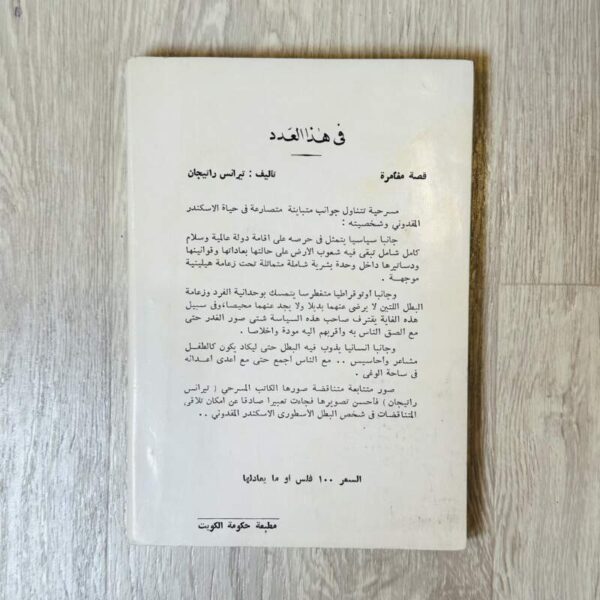 في هذا العدد
قصة مغامرة تاليف : تيرانس راتيجان
مسرحية تتناول جوانب متباينة متصارعة في حياة الاسكندر
المقدوني وشخصيته :
جانبا سياسيا يتمثل في حرصه على اقامة دولة عالمية وسلام
كامل شامل تبقى فيه شعوب الارض على حالتها بعاداتها وقوانينها
ودساتيرها داخل وحدة بشرية شاملة متماثلة تحت زعامة هيلينية
موجهة .
وجانبا أوتوقراطيا متغطرسا يتمسك بوحدانية الفرد وزعامة
البطل اللتين لا يرضى عنهما بديلا ولا يجد عنهما محيصا، وفي سبيل
هذه الغاية يقترف صاحب هذه السياسة شتى صور الغدر حتى
مع الصق الناس به واقربهم اليه مودة واخلاصا .
وجانبا انسانيا يذوب فيه البطل حتى ليكاد يكون كالطفل
مشاعر واحاسيس .. مع الناس اجمع حتى مع اعدى اعدائه
في ساحة الوغى .
صور متتابعة متناقضة صورها الكاتب المسرحي ( تيرانس
راتيجان ) فأحسن تصويرها فجاءت تعبيرا صادقا عن امكان تلاقي
المتناقضات في شخص البطل الأسطوري الاسكندر المقدوني ..
السعر ١٠٠ فلس او ما يعادلها
مطبعة حكومة الكويت